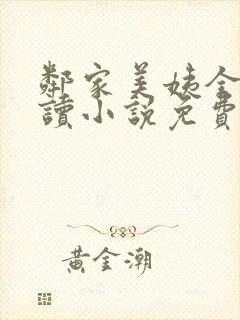 鄰家美姨全
讀小說免費
黃金潮